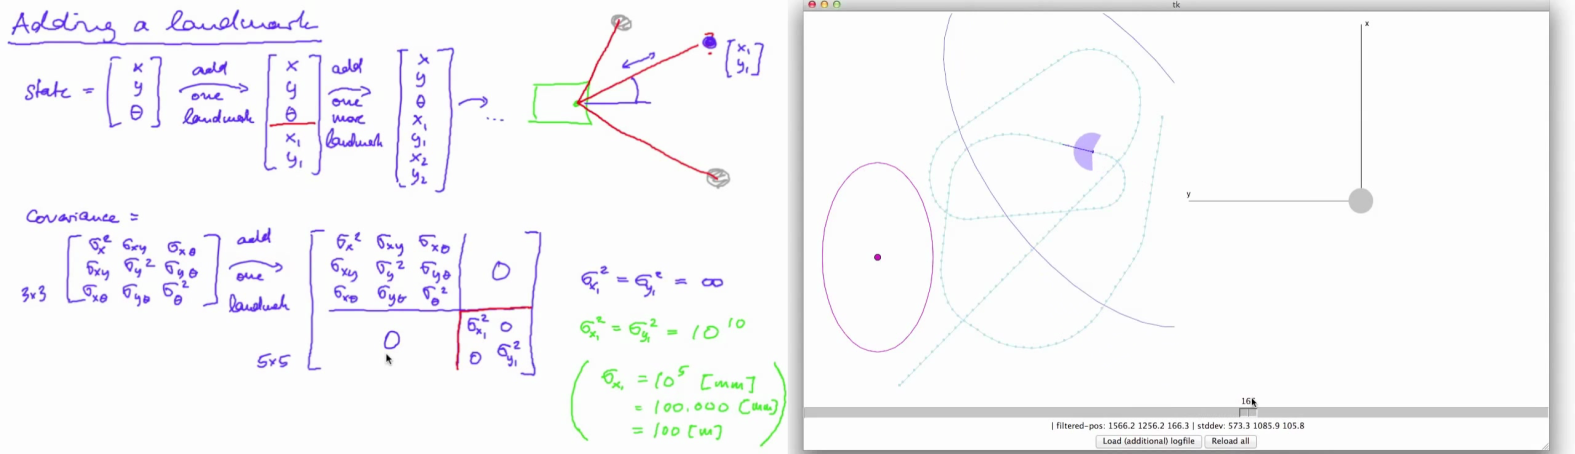 Adding a landmark
state = [ x y θ ] add one landmark [ x y θ x₁ y₁ ] add one more landmark [ x y θ x₁ y₁ x₂ y₂ ] ...
?
[ x₁ y₁ ]
Covariance =
3x3
σx² σxy σxθ
σxy σy² σyθ
σxθ σyθ σθ²
add
one
landmark
5x5
σx² σxy σxθ
σxy σy² σyθ 0
σxθ σyθ σθ²
0
σx₁² 0
0 σy₁²
σx₁² = σy₁² = ∞
σx₁² = σy₁² = 10¹⁰
( σx₁ = 10⁵ [mm]
= 100.000 [mm]
= 100 [m] )
tk
x
y
| filtered-pos: 1566.2 1256.2 166.3 | stddev: 573.3 1085.9 105.8
Load (additional) logfile
Reload all